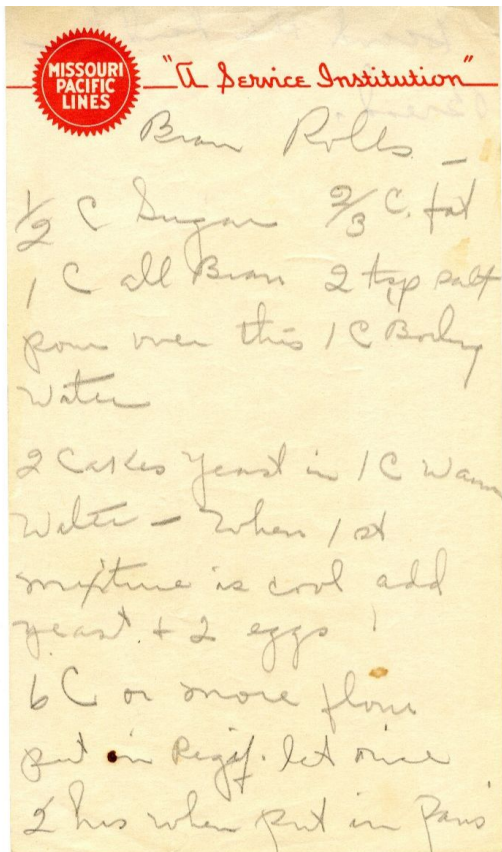 MISSOURI
PACIFIC
LINES
"A Service Institution"
Bran Rolls -
1/2 C Sugar 2/3 C. fat
1 C all Bran 2 tsp salt
pour over this 1 C Boiling
Water
2 Cakes yeast in 1 C Warm
Water - When 1st
mixture is cool add
yeast + 2 eggs
6 C or more flour
put in Regif. let rise
2 hrs when put in Pans